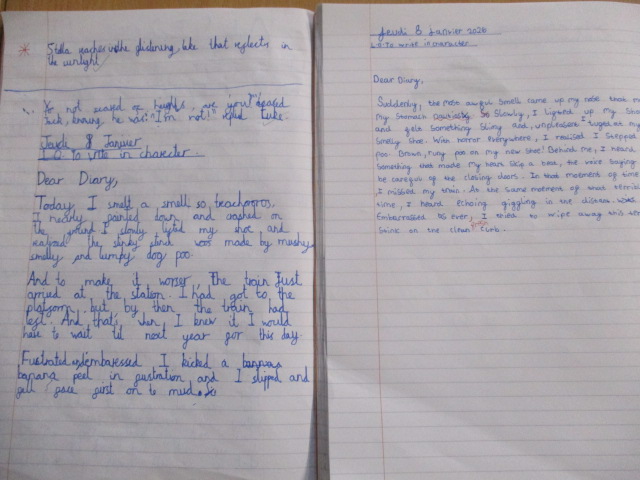 Stella reaches the glistening lake that reflects in
the sunlight
"Yo not scared of heights, are you?" teased
Jack, knowing he was. "I'm not!" Luke.
Jeudi 8 Janvier
L.O. To write in character.
Dear Diary,
Today, I smelt a smell so, treacheros.
I nearly painted down and on
the ground I slowly lifted my shoe and
realised the stinky was made by mushy
smelly and lumpy dog poo.
And to make it worser, the train Just
arrived at the station. I had got to the
platform but by then the train had
left. And that's when I knew it I would
have to wait til next year for this day.
Fustrated and embaressed I kicked a
banana peel in fustration and I slipped and
fell face first on to mud.
Jeudi 8 Janvier 2026
L.O To write in character
Dear Diary,
Suddenly, the most awful smell came up my nose that m
my stomach So slowly, I lifted up my sho
and felt something slimy and, unpleasent tuged at my
smelly shoe. With horror everywhere, I realised I stepped
poo. Brown, runy poo on my new shoe! Behind me, I heard
something that made my heart skip a beat, the voice saying
be carefull of the closing doors. In that motment of time
I missed my train. At the same motment of
time, I heard echoing giggling in the distance.
Embarrassed as ever, I tried to wipe away this
stink on the clean curb.